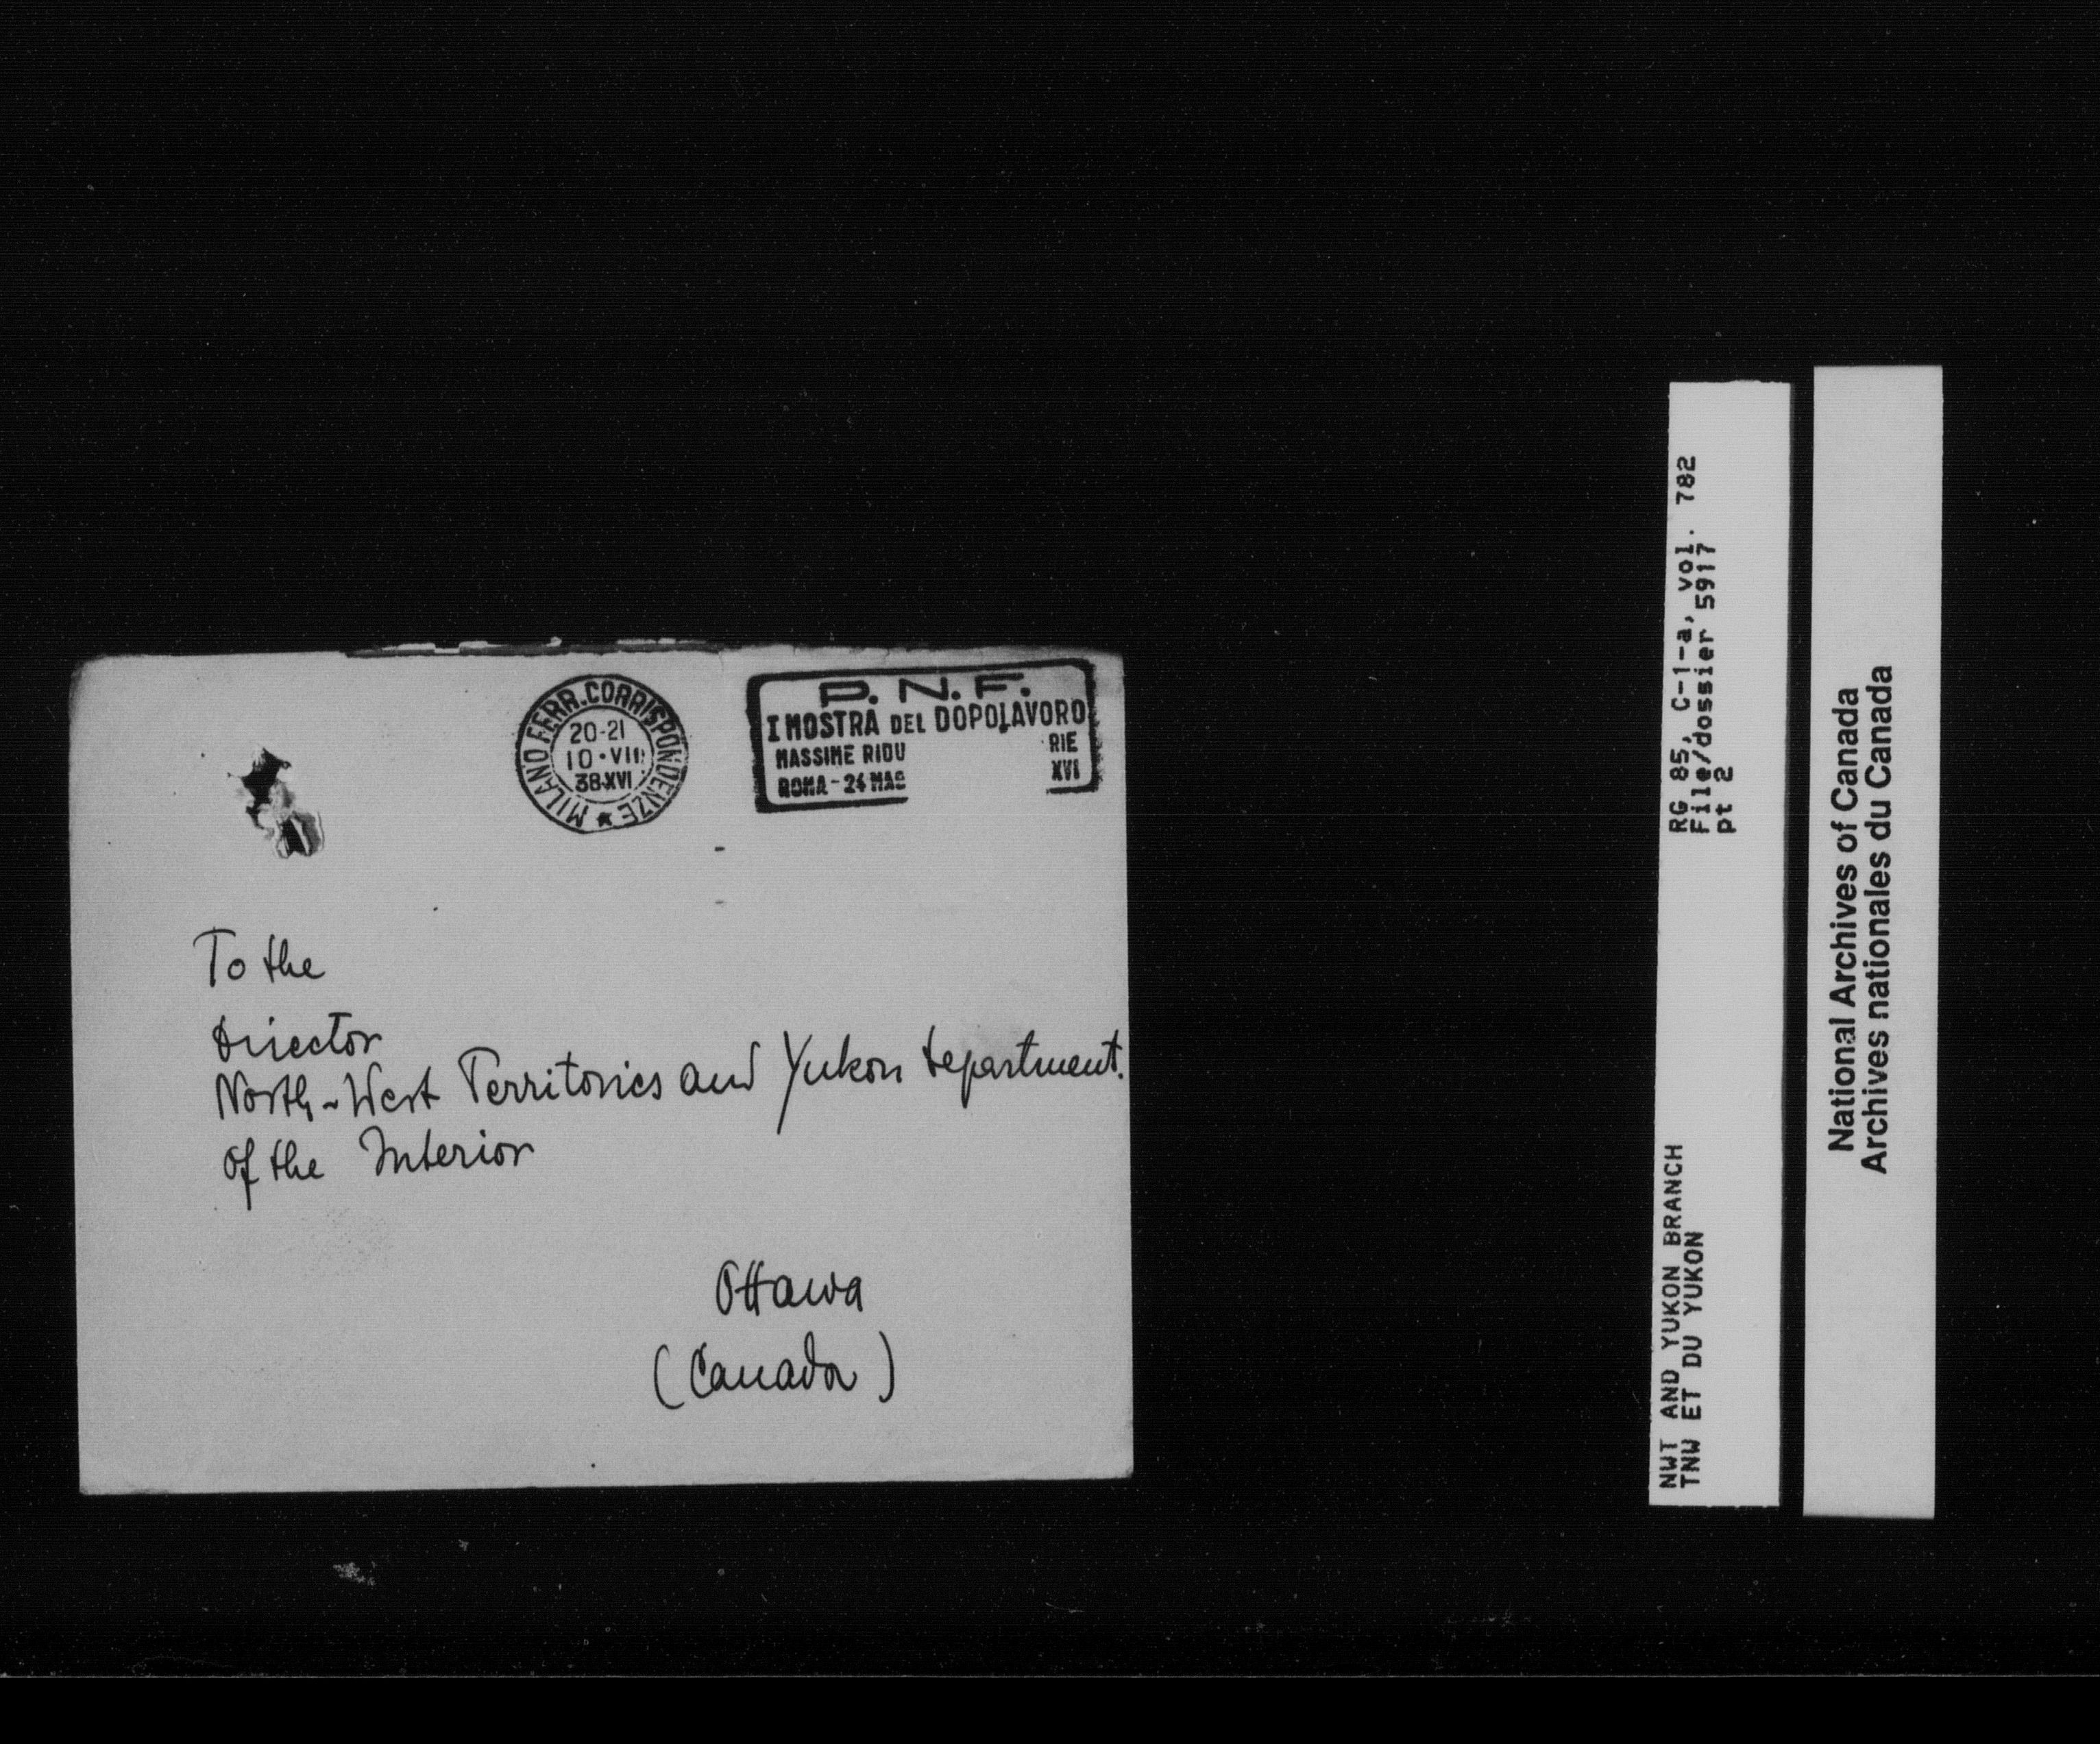 MILANO FERR. CORRISPONDENZE
20-21
10·VII
38·XVI
P. N. F.
I MOSTRA DEL DOPOLAVORO
MASSIME RIDU RIE
ROMA - 24 MAG XVI
To the
Director
North-West Territories and Yukon Department.
of the Interior
Ottawa
(Canada)
RG 85, C-1-a, vol. 782
File/dossier 5917
pt 2
NWT AND YUKON BRANCH
TNW ET DU YUKON
National Archives of Canada
Archives nationales du Canada